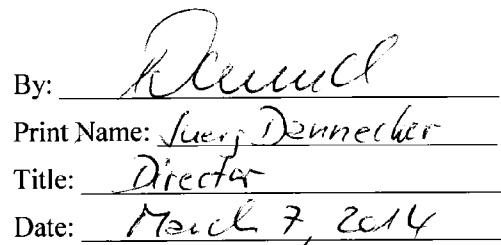 By:
Print Name: Juerg Dannecker
Title: Director
Date: March 7, 2014